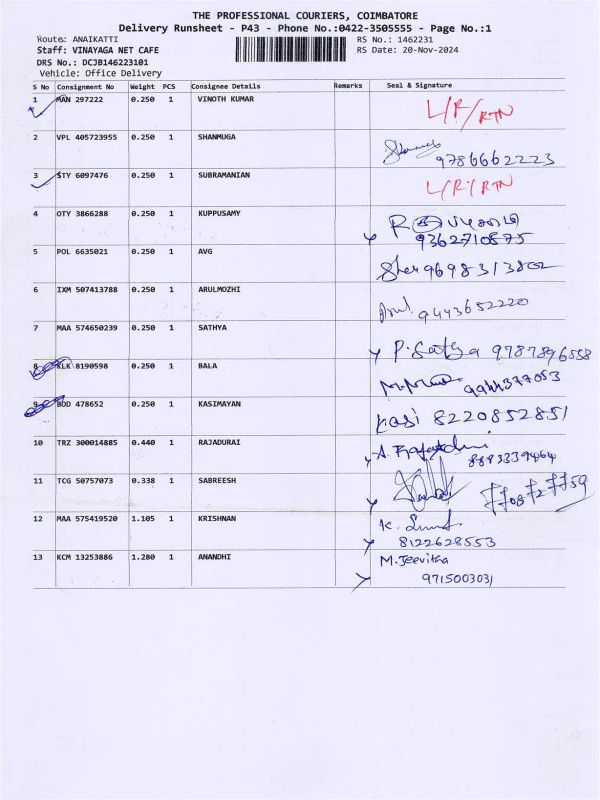 THE PROFESSIONAL COURIERS, COIMBATORE
Delivery Runsheet - P43 - Phone No.:0422-3505555 - Page No.:1
Route: ANAIKATTI RS No.: 1462231
Staff: VINAYAGA NET CAFE RS Date: 20-Nov-2024
DRS No.: DCJB146223101
Vehicle: Office Delivery
S No Consignment No Weight PCS Consignee Details Remarks Seal & Signature
1 MAN 297222 0.250 1 VINOTH KUMAR L/R/RTN
2 VPL 405723955 0.250 1 SHANMUGA
9786662223
3 STY 6097476 0.250 1 SUBRAMANIAN L/R/RTN
4 OTY 3866288 0.250 1 KUPPUSAMY
9362710875
5 POL 6635021 0.250 1 AVG 9698313802
6 IXM 507413788 0.250 1 ARULMOZHI Arul. 9443652220
7 MAA 574650239 0.250 1 SATHYA P. Satya 9787896558
8 KLK 8190598 0.250 1 BALA 9944377053
9 BOD 478652 0.250 1 KASIMAYAN Kasi 8220852851
10 TRZ 300014885 0.440 1 RAJADURAI A.
8883339464
11 TCG 50757073 0.338 1 SABREESH
12 MAA 575419520 1.105 1 KRISHNAN K.
8122628553
13 KCM 13253886 1.280 1 ANANDHI M. Jeevitha
9715003031